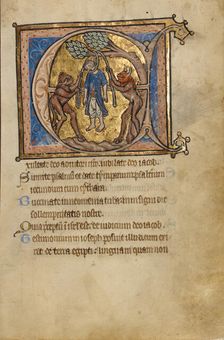 Exultate deo adiutori nr̃o iubilate deo iacob.
Sumite psalmū et date tympanum psalterium
iocundum cum cythara.
Buccinate in neomenia tuba in insigni die
sollempnitatis nostre.
Quia p̃ceptū ī isrl̃ est et iudicium deo iacob.
Testimonium in ioseph posuit illud cum exiret
de terra egipti linguam quam non